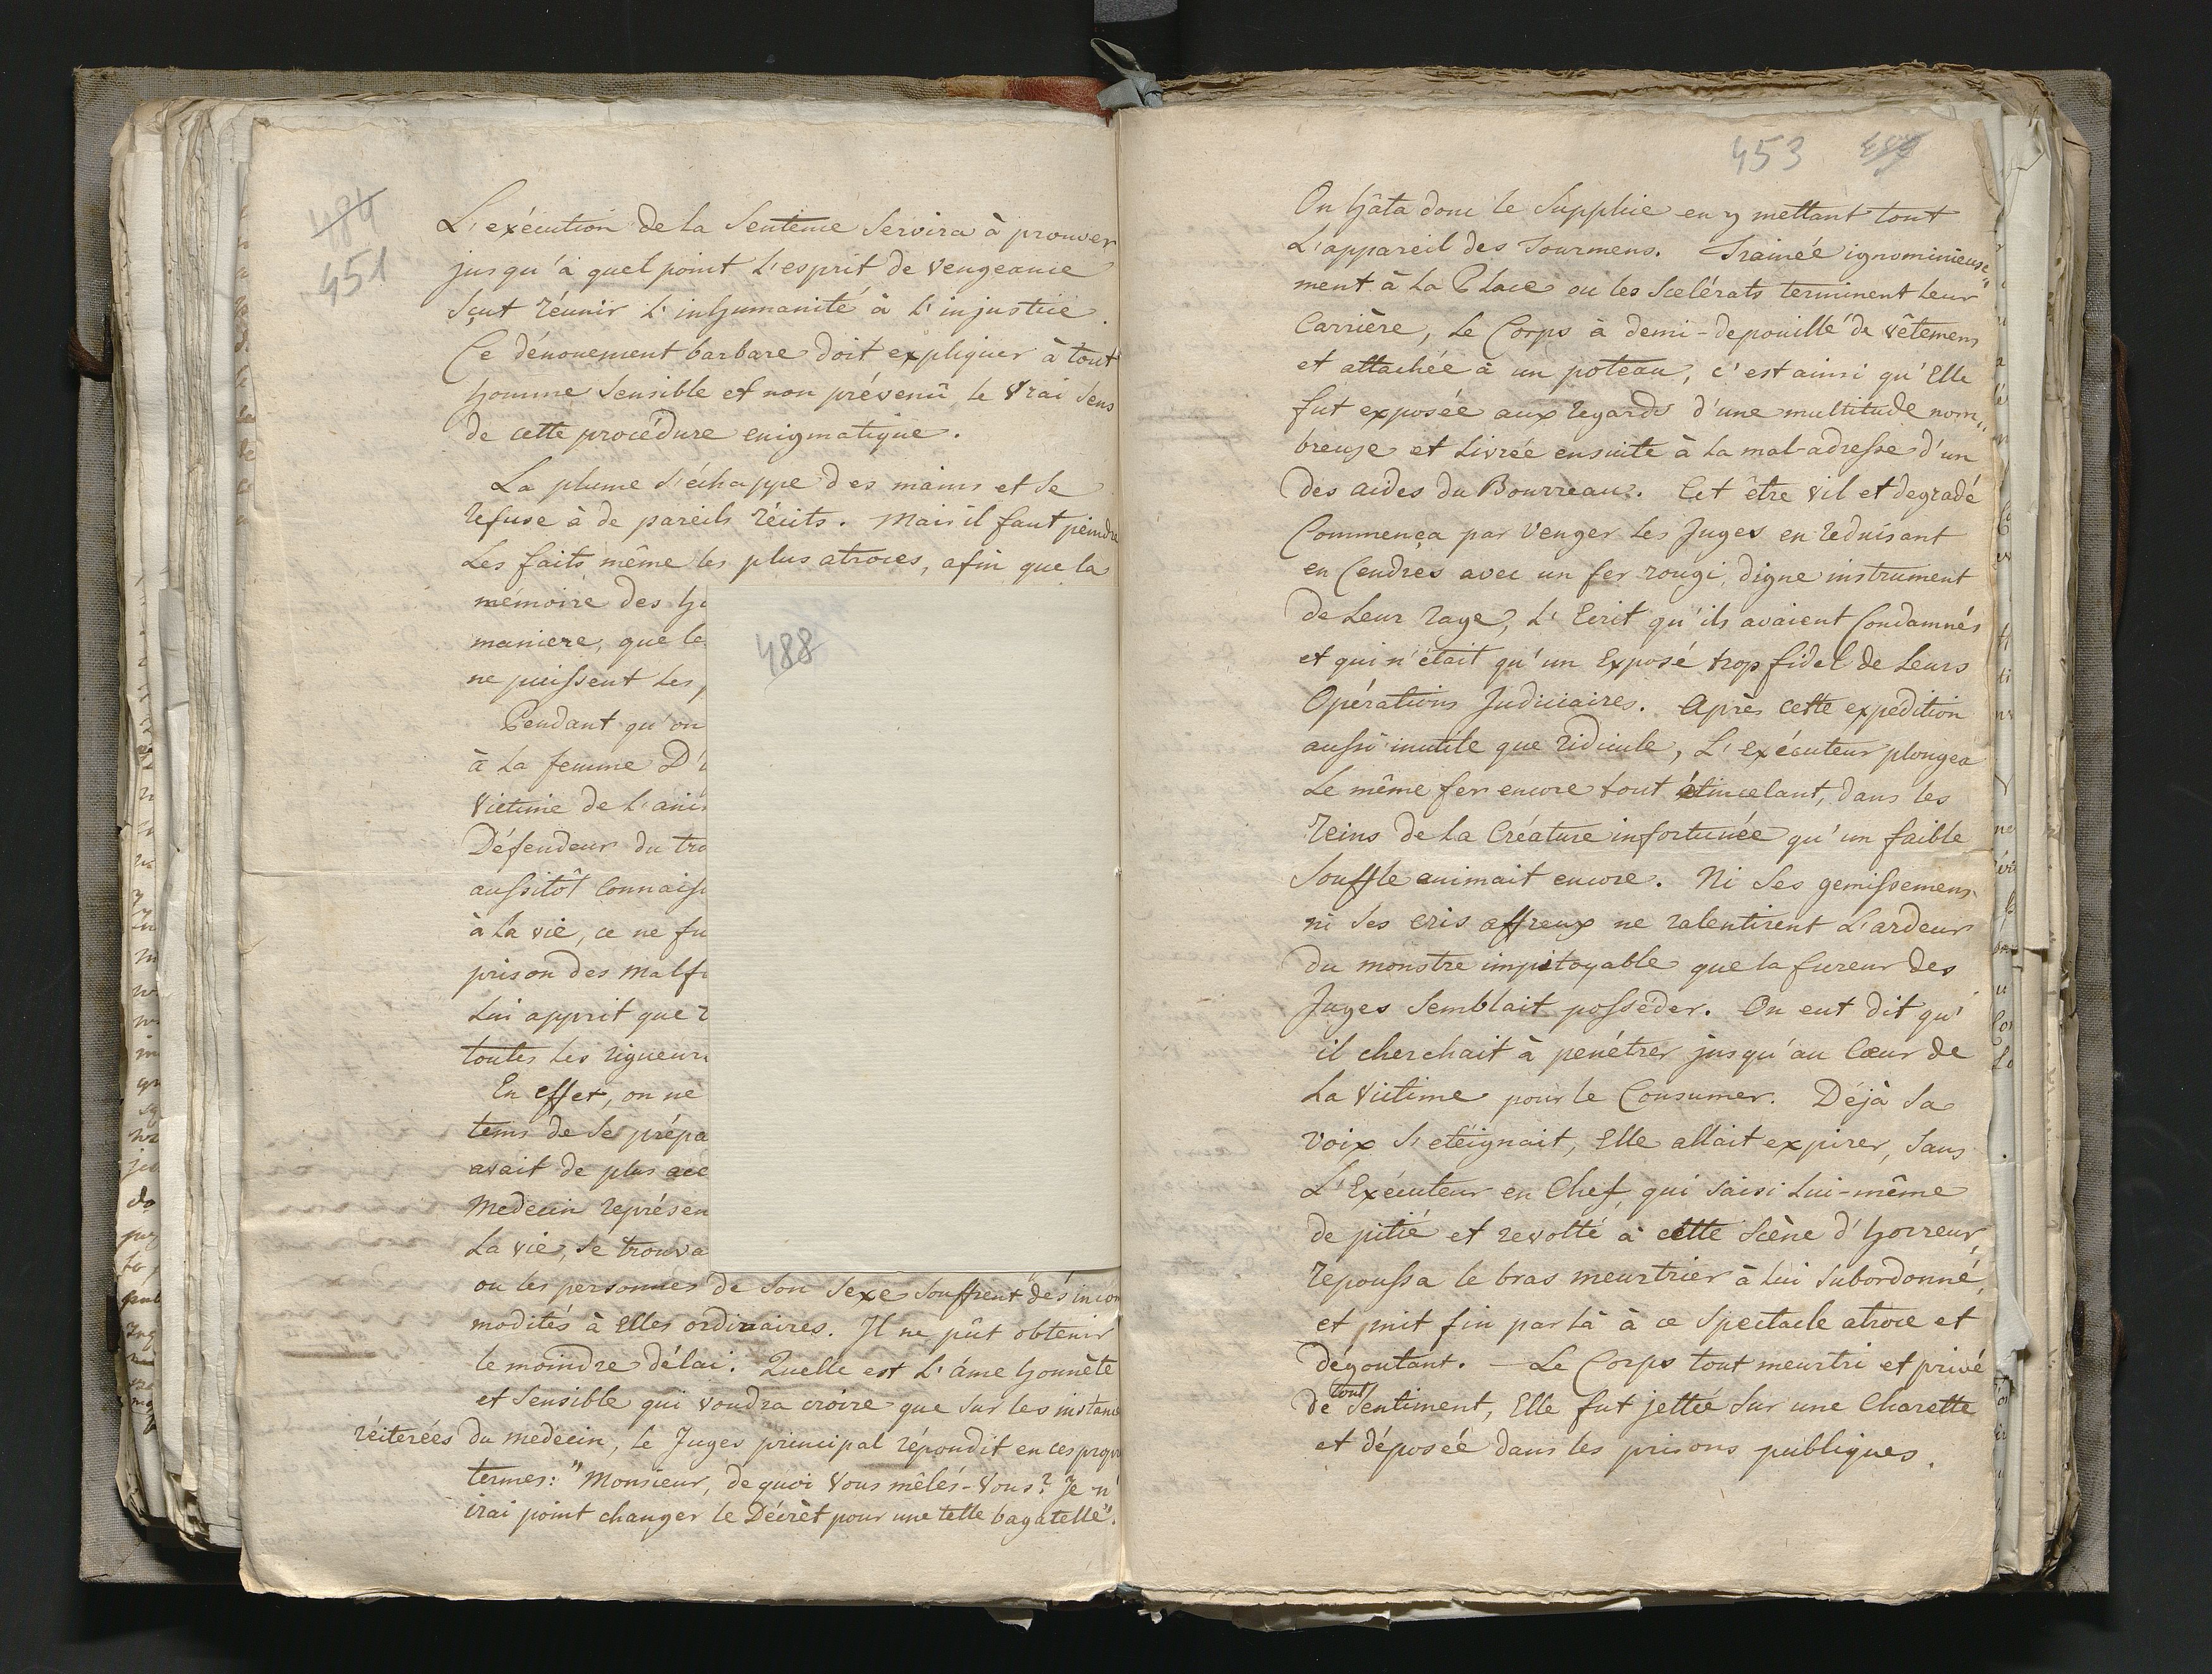 484
451
L'exécution de la Sentence Servira à prouver
jusqu'à quel point L'esprit de vengeance
Sçut réunir L'inhumanité à L'injustice.
Ce dénouement barbare doit expliquer à tout
homme Sensible et non prévenû, le vrai sens
de cette procédure enigmatique.
La plume s'échappe des mains et se
refuse à de pareils récits. Mais il faut peindre
Les faits même les plus atroces, afin que la
mémoire des
maniere, que
ne puissent les
Pendant qu'on
à La femme
Victime de L'
Défendeur du
aussitôt
à la vie, ce ne
prison des
Lui apprit que
toutes les rigueurs
En effet, on ne
tems de se
avait de plus
Medecin
La vie, se trouva
488
ou les personnes de Son Sexe Souffrent des incom
modités à Elles ordinaires. Il ne pût obtenir
le moindre délai. Quelle est L'âme honnête
et Sensible qui voudra croire que sur les
réiterées du medecin, le Juges principal répondit en ces
termes: "Monsieur, de quoi Vous mêlés-Vous? Je n'
irai point changer le Décrèt pour une telle bagatelle".
453
On hâta donc le Supplice en y mettant tout
L'appareil des Tourmens. Trainée ignominieuse„
ment à La Place ou les Scelérats terminent leur
Carrière, Le Corps à demi-depouillé de vêtemens
et attachée à un poteau, c'est ainsi qu'Elle
fut exposée aux regards d'une multitude nom„
breuse et Livrée ensuite à La mal-adresse d'un
des aides du Bourreau. Cet être vil et degradé
Commença par Venger Les Juges en reduisant
en Cendres avec un fer rougi, digne instrument
de Leur rage, L'Ecrit qu'ils avaient Condamnés
et qui n'était qu'un Exposé trop fidel de Leurs
Opérations Judiciaires. Après cette expédition
aussi inutile que ridicule, L'exécuteur plongea
Le même fer encore tout étincelant, dans les
reins de La Créature infortunée qu'un faible
Souffle animait encore. Ni Ses gemissemens
ni Ses cris affreux ne ralentirent L'ardeur
du monstre impitoyable que la fureur des
Juges Semblait posséder. On eut dit qu'
il cherchait à penétrer jusqu'au Cœur de
La Victime pour le Consumer. Déjà Sa
voix s'eteignait, Elle allait expirer, Sans
L'Exécuteur en Chef qui saisi Lui-même
de pitié et revolté à cette Scène d'horreur
repoussa le bras meurtrier à Lui Subordonné,
et mit fin par là à ce Spectacle atroce et
dégoutant. - Le Corps tout meurtri et privé
de tout Sentiment, Elle fut jettée Sur une Charette
et déposée dans les prisons publiques.